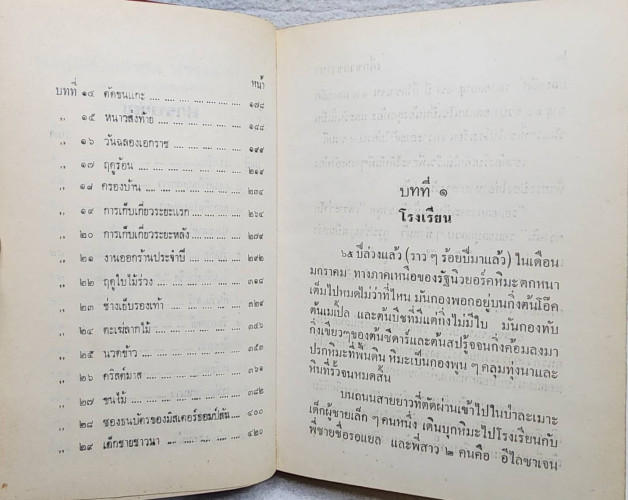 หน้า
บทที่ ๑๔ ตัดขนแกะ .... .... .... .... .... .... ๑๗๘
,, ๑๕ หนาวส่งท้าย .... .... .... .... .... ๑๘๘
,, ๑๖ วันฉลองเอกราช .... .... .... .... ๑๙๙
,, ๑๗ ฤดูร้อน .... .... .... .... .... .... ๒๑๙
,, ๑๘ ครองบ้าน .... .... .... .... .... ๒๓๔
,, ๑๙ การเก็บเกี่ยวระยะแรก .... .... .... ๒๖๔
,, ๒๐ การเก็บเกี่ยวระยะหลัง .... .... .... ๒๗๙
,, ๒๑ งานออกร้านประจำปี .... .... .... ๒๙๒
,, ๒๒ ฤดูใบไม้ร่วง .... .... .... .... .... ๓๑๘
,, ๒๓ ช่างเย็บรองเท้า .... .... .... .... ๓๒๙
,, ๒๔ ตะเฆ่ลากไม้ .... .... .... .... .... ๓๔๖
,, ๒๕ นวดข้าว .... .... .... .... .... .... ๓๕๓
,, ๒๖ คริสต์มาส .... .... .... .... .... ๓๖๑
,, ๒๗ ขนไม้ .... .... .... .... .... .... ๓๘๒
,, ๒๘ ซองธนบัตรของมิสเตอร์ธอมป์สัน .... ๔๐๐
,, ๒๙ เด็กชายชาวนา .... .... .... .... ๔๒๐
บทที่ ๑
โรงเรียน
๖๕ ปีล่วงแล้ว (ราว ๆ ร้อยปีมาแล้ว) ในเดือน
มกราคม ทางภาคเหนือของรัฐนิวยอร์คหิมะตกหนา
เต็มไปหมดไม่ว่าที่ไหน มันกองพอกอยู่บนกิ่งต้นโอ๊ค
ต้นเมเปิ้ล และต้นบีชที่มีแต่กิ่งไม่มีใบ มันกองทับ
กิ่งเขียวๆของต้นซีดาร์และต้นสปรู๊ซจนกิ่งค้อมลงมา
ปรกหิมะที่พื้นดิน หิมะเป็นกองพูน ๆ คลุมทุ่งนาและ
หินที่รั้วจนหมดสิ้น
บนถนนสายยาวที่ตัดผ่านเข้าไปในป่าละเมาะ
เด็กผู้ชายเล็ก ๆ คนหนึ่ง เดินบุกหิมะไปโรงเรียนกับ
พี่ชายชื่อรอแยล และพี่สาว ๒ คนคือ อีไลซาเจน